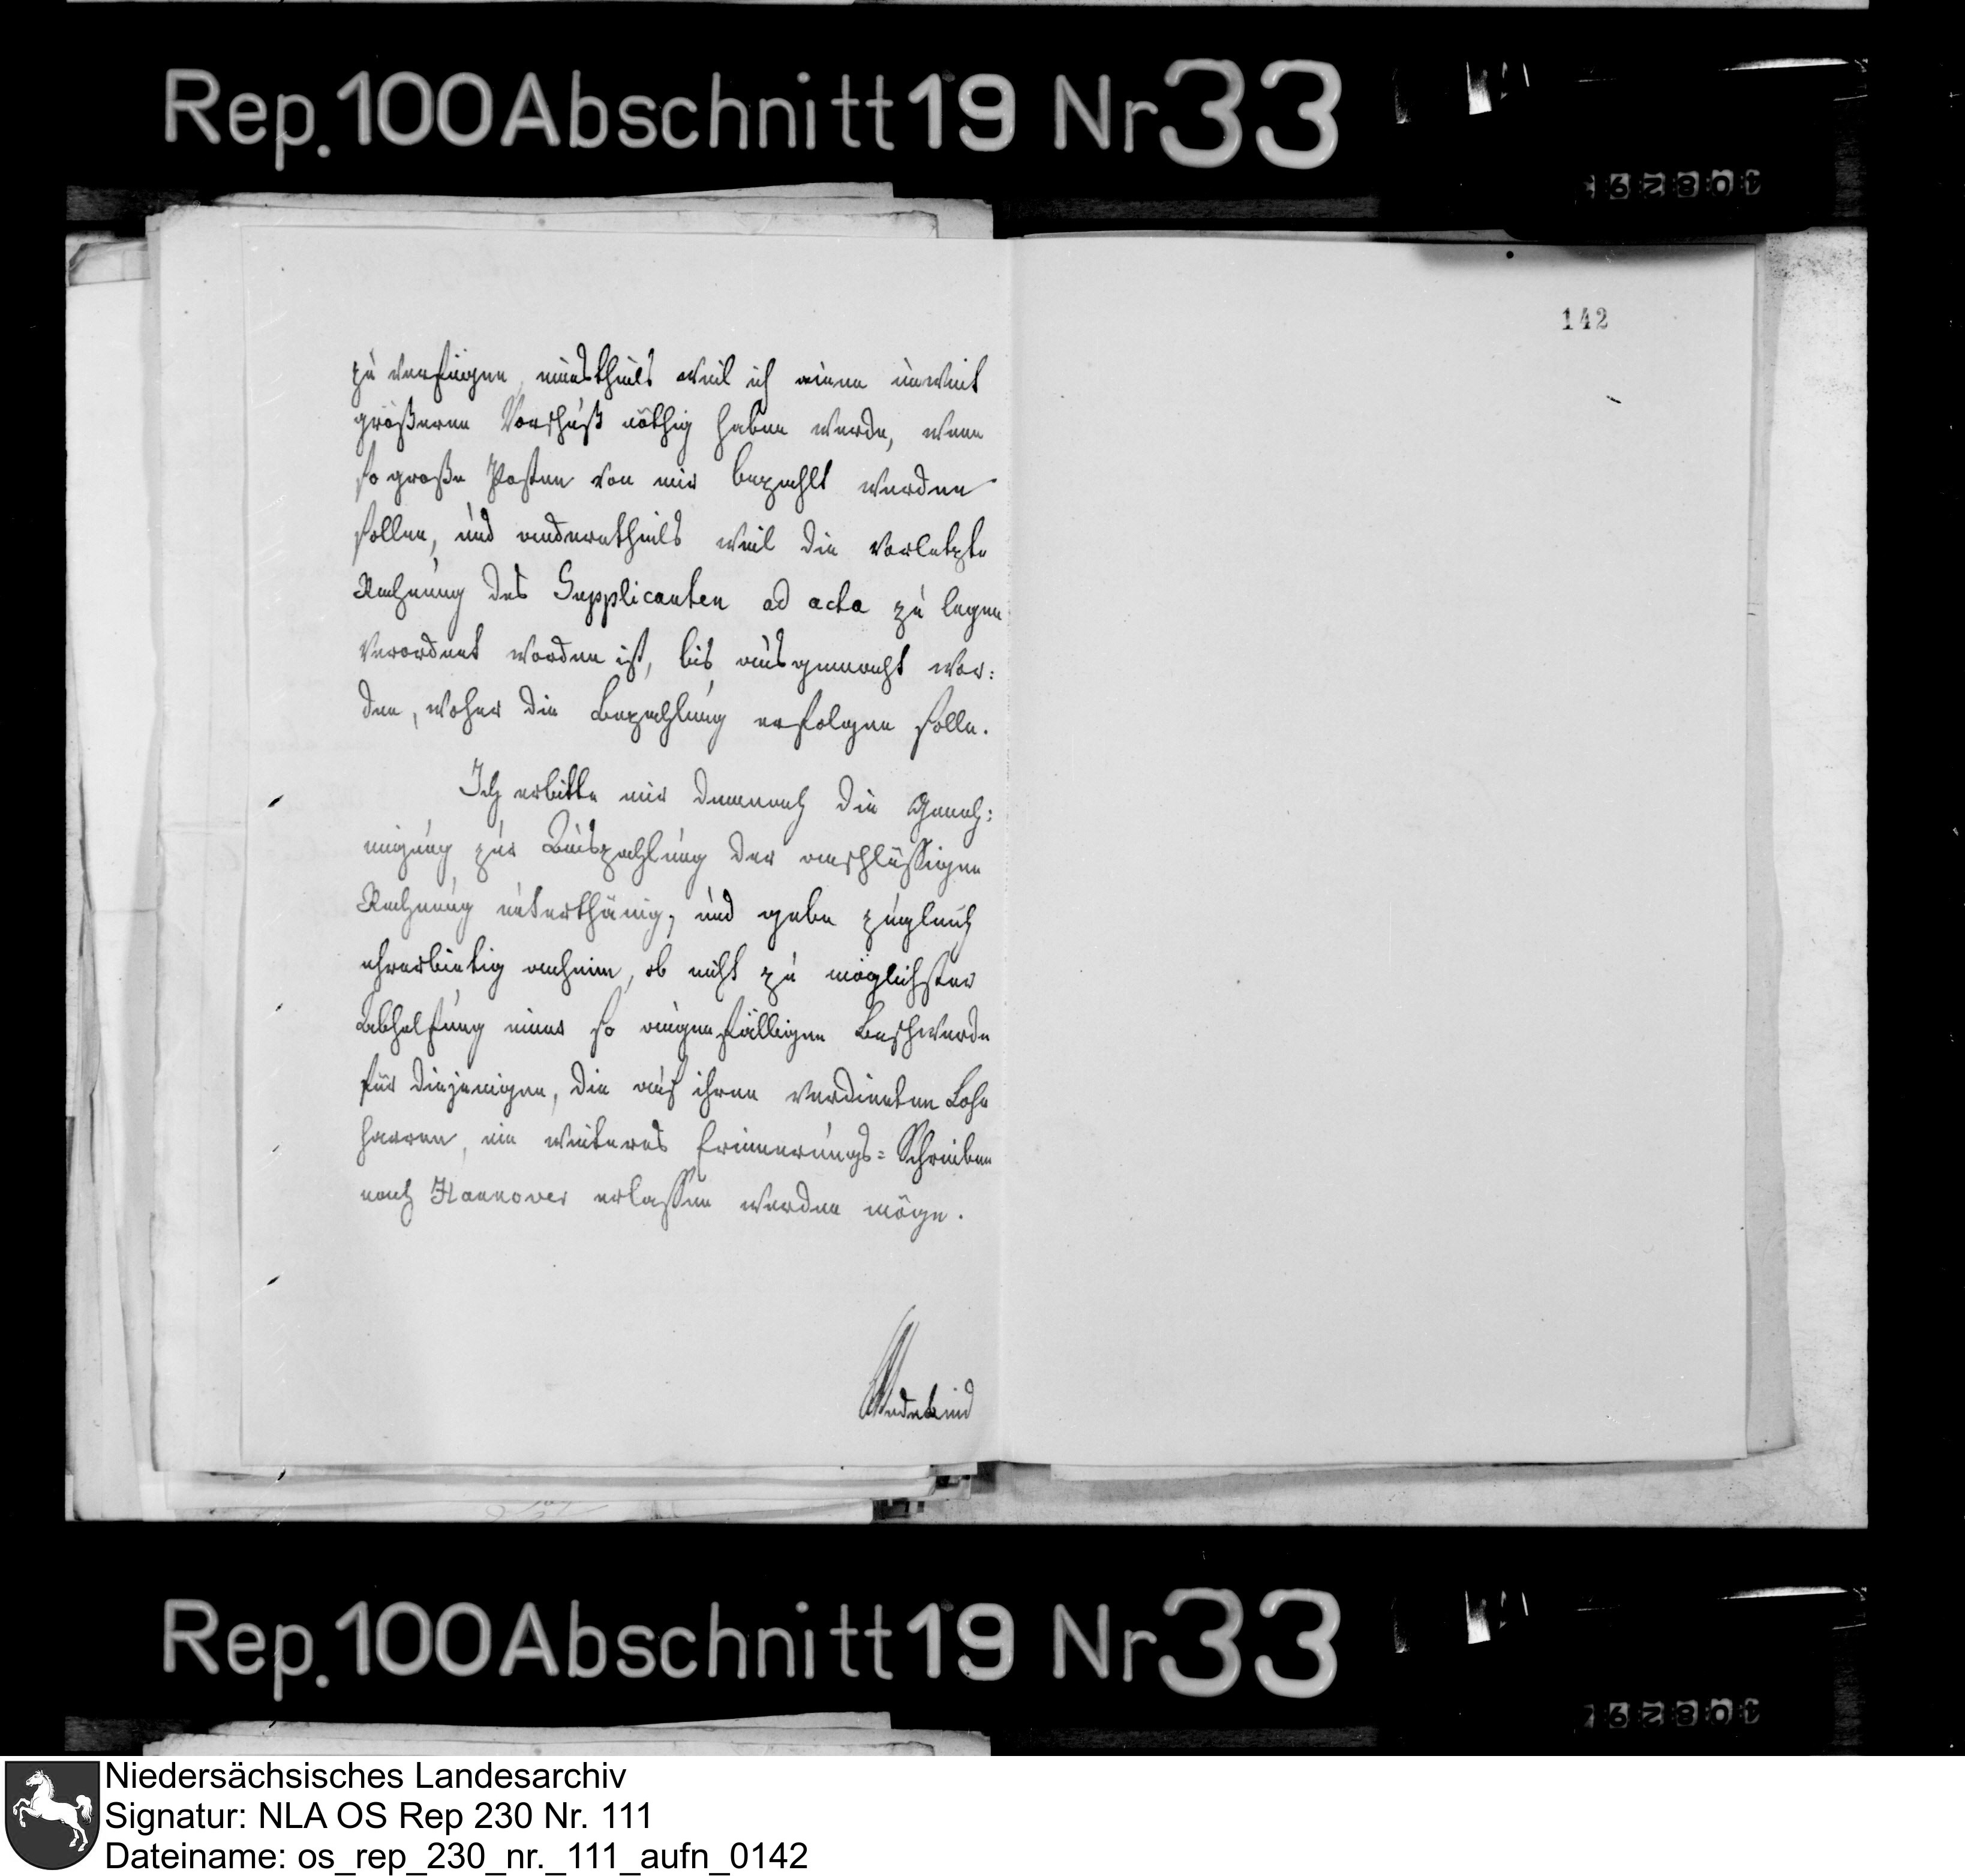 Rep.100Abschnitt19 Nr33
142
zu verfügen, einestheils weil ich einen unweit
größeren Vorschuß nöthig haben werde, wenn
so große Posten von mir bezahlt werden
sollen, und anderntheils weil die vorletzte
Rechnung des Supplicanten ad acta zu legen
verordnet worden ist, bis ausgemacht wor:
den, woher die Bezahlung erfolgen solle.
Ich erbitte mir demnach die Geneh:
migung zur Auszahlung der anschlüssigen
Rechnung unterthänig, und gebe zugleich
ehrerbietig anheim, ob nicht zu möglichster
Abhelfung einer so augenfälligen Beschwerde
für diejenigen, die auf ihren verdienten Lohn
harren, ein weiteres Erinnerungs= Schreiben
nach Hannover erlassen werden möge.
Wedekind
Rep.100Abschnitt19 Nr33
Niedersächsisches Landesarchiv
Signatur: NLA OS Rep 230 Nr. 111
Dateiname: os_rep_230_nr._111_aufn_0142